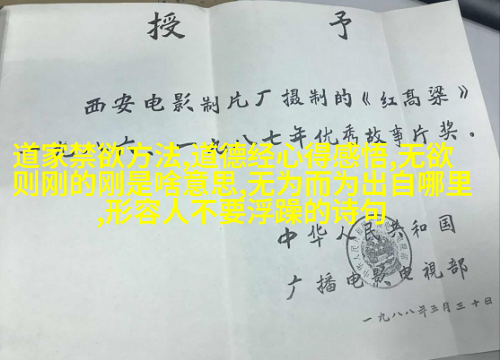 授予
西安电影制片厂摄制的《红高粱》
一九八六、一九八七年优秀故事片奖。
道家禁欲方法,道德经心得感悟,无欲
则刚的刚是啥意思,无为而为出自哪里
,形容人不要浮躁的诗句
中华人民共和国
广播电影电视部
一九八八年三月三十日